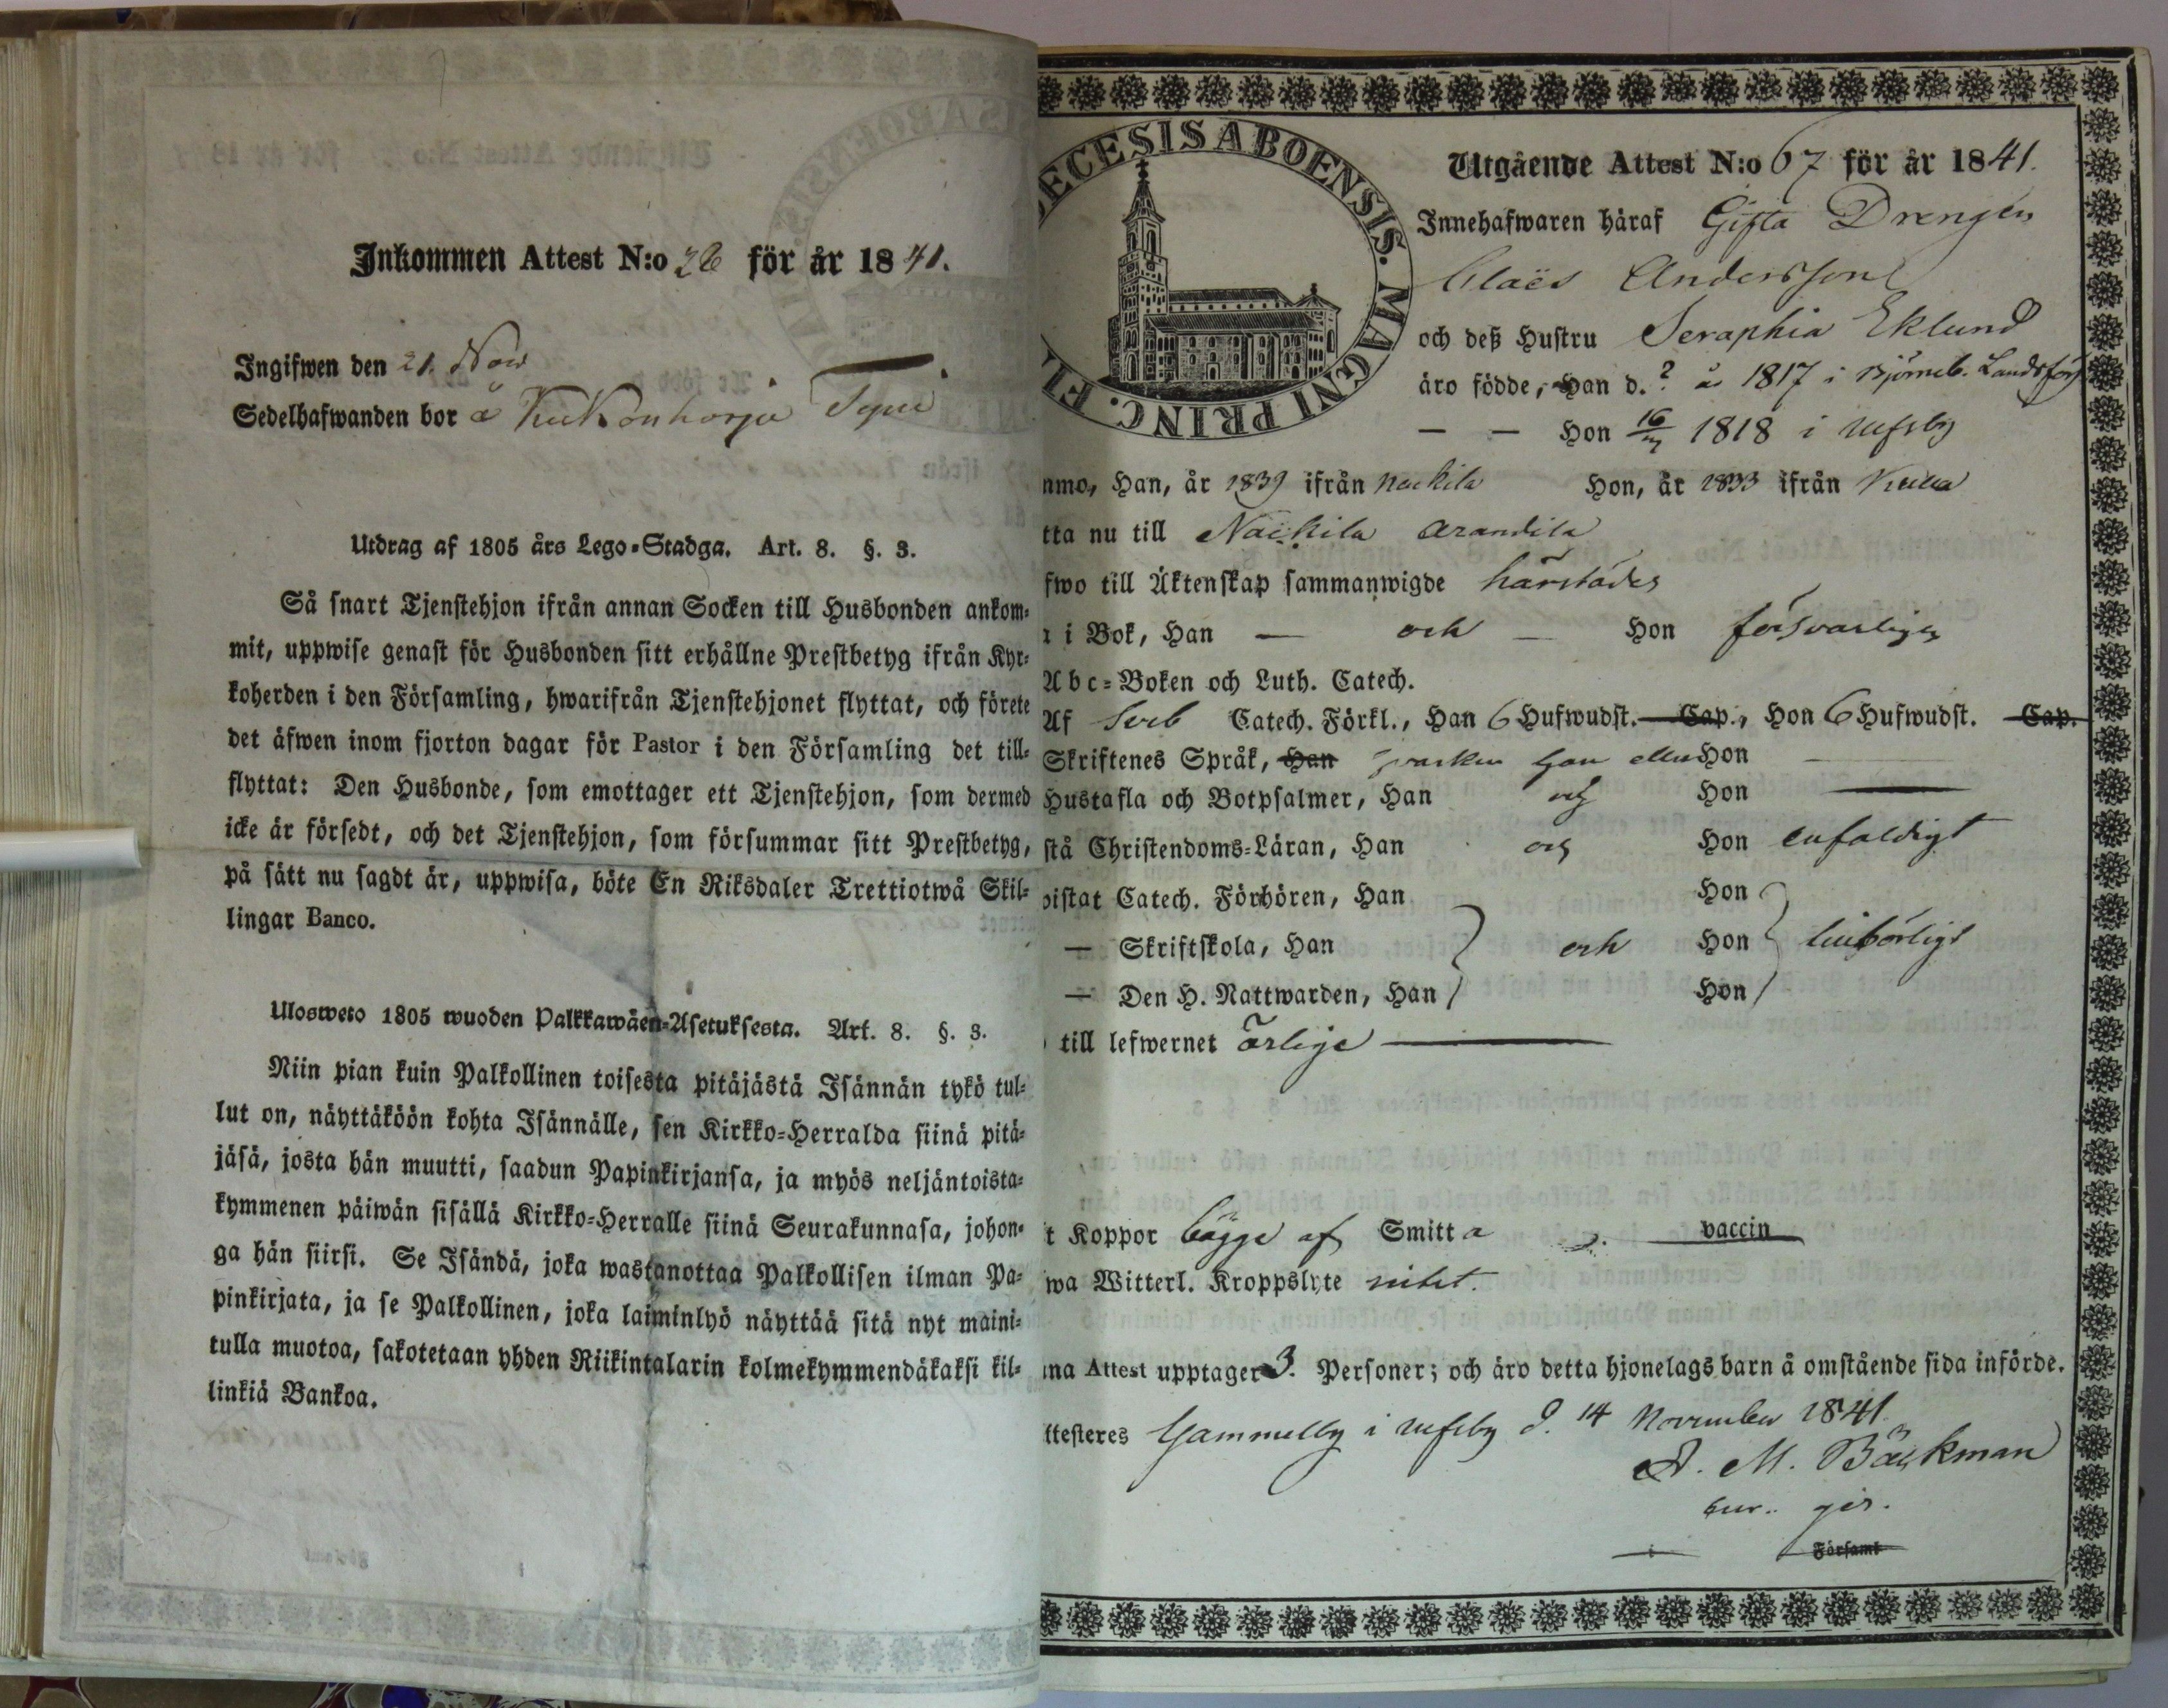 Inkommen Attest N:o 26 för år 1841.
Ingifwen den 21. Nov
Sedelhafwanden bor å
Utdrag af 1805 års Lego-Stadga. Art. 8. §. 3.
Så snart Tjenstehjon ifrån annan Socken till Husbonden ankom-
mit, uppwise genast för Husbonden sitt erhållne Prestbetyg ifrån Kyr-
koherden i den Församling, hwarifrån Tjenstehjonet flyttat, och förete
det äfwen inom fjorton dagar för Pastor i den Församling det till-
flyttat: Den Husbonde, som emottager ett Tjenstehjon, som dermed
icke är försedt, och det Tjenstehjon, som försummar sitt Prestbetyg,
på sätt nu sagdt är, uppwisa, böte En Riksdaler Trettiotwå Skil-
lingar Banco.
Ulosweto 1805 wuoden Palkkawäen-Asetuksesta. Art. 8. §. 3.
Niin pian kuin Palkollinen toisesta pitäjästä Isännän tykö tul-
lut on, näyttäköön kohta Isännälle, sen Kirkko-Herralda siinä pitä-
jäsä, josta hän muutti, saadun Papinkirjansa, ja myös neljäntoista-
kymmenen päiwän sisällä Kirkko-Herralle siinä Seurakunnasa, johon-
ga hän siirsi. Se Isändä, joka wastanottaa Palkollisen ilman Pa-
pinkirjata, ja se Palkollinen, joka laiminlyö näyttää sitä nyt maini-
tulla muotoa, sakotetaan yhden Riikintalarin kolmekymmendäkaksi kil-
linkiä Bankoa.
ECESIS ABOENSIS. MAGNI PRINC. FI
Utgående Attest N:o 67 för år 1841.
Innehafwaren häraf Gifta Drengen
Claës Andersson
och deß Hustru Seraphia Eklund
äro födde, Han d. ? år 1817 i Björneb. Landsförs
— — Hon 16/7 1818 i Ulfsby
nmo, Han, år 1839 ifrån Nackila Hon, år 1833 ifrån Kulla
tta nu till Nackila Arandila
fwo till Äktenskap sammanwigde härstädes
i Bok, Han — och — Hon försvarligen
Abc-Boken och Luth. Catech.
Af Sveb Catech. Förkl., Han 6 Hufwudst. Cap., Hon 6 Hufwudst. Cap.
Skriftenes Språk, Han hvarken Han eller Hon —
Hustafla och Botpsalmer, Han och Hon —
stå Christendoms-Läran, Han och Hon enfaldigt
istat Catech. Förhören, Han Hon
— Skriftskola, Han och Hon behörligt
— Den H. Nattwarden, Han Hon
till lefwernet ärlige —
t Koppor bägge af Smitta vaccin
wa Witterl. Kroppslyte intet.
na Attest upptager 3. Personer; och äro detta hjonelags barn å omstående sida införde.
ttesteres Gammelby i Ulfsby d. 14 November 1841.
A. M. Bäckman
i Församl